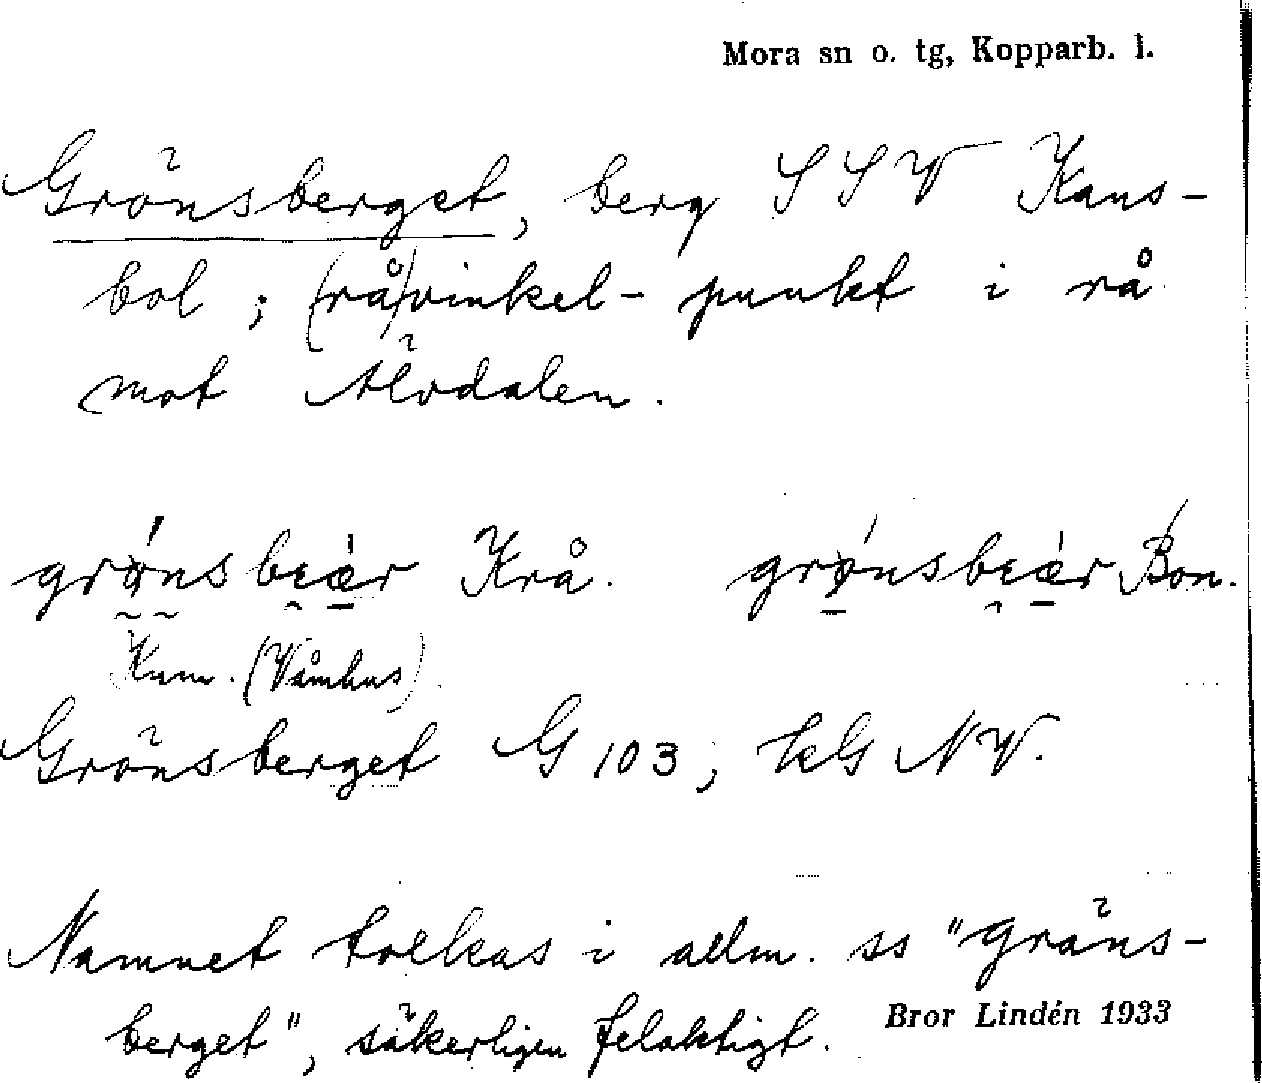 Mora sn o. tg, Kopparb. l.
Grönsberget, berg SSV Kans-
bol; (rå)vinkel-punkt i rå
mot Älvdalen.
grønsbeær Krå. grønsbeær Bon.
(Våmhus)
Grönsberget G 103, kG NV.
Namnet tolkas i allm. ss "gräns-
berget", säkerligen felaktigt.
Bror Lindén 1933